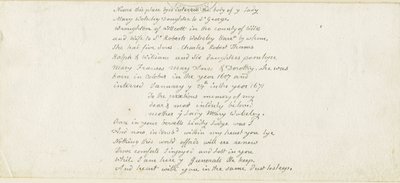 Neare this place lyes interred the body of ye Lady
Mary Wolseley Daughter to Sr George
Wroughton of Willcott in the county of Wilts
and wife to Sr Robert Wolseley Barnt by whom
She had five Sons Charles Robert Thomas
Ralph & William and six daughters penelope
Mary Frances Mary Anne & Dorothy. she was
born in October in the year 1607 and
interred January ye 24th in the year 1671
To the precious memory of my
dear & most intirely belov'd
mother ye Lady Mary Wolseley.
Once in your bowells kindly Lodge was I
And now intomb'd within my heart you lye
Nothing this world affords will ere renew
Those comforts I injoyed and lost in you
While I am here ye Funeralls Ile keep
And heart with you in the same Dust to sleep.